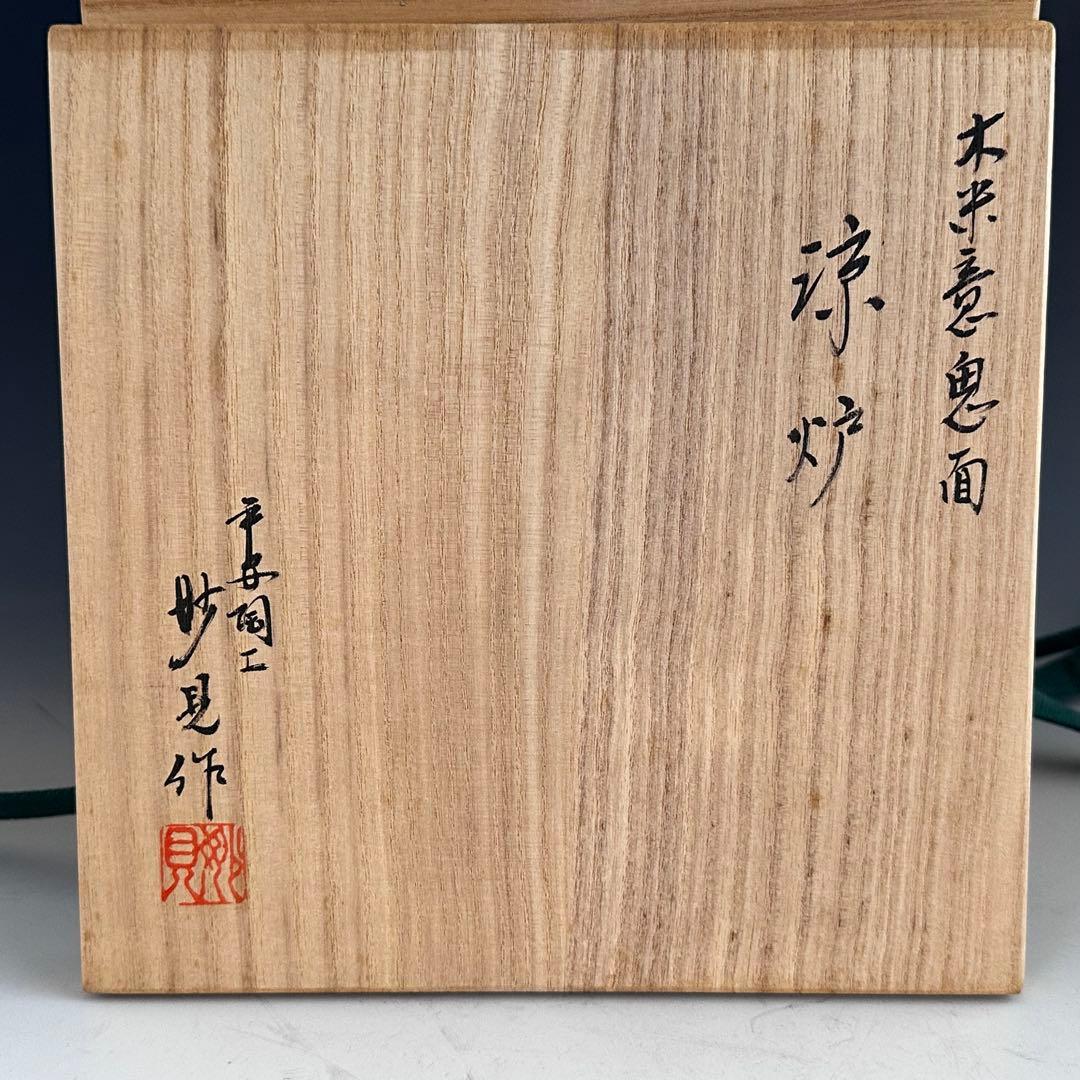 木米意鬼面
涼炉
平安陶工
妙見作
妙見